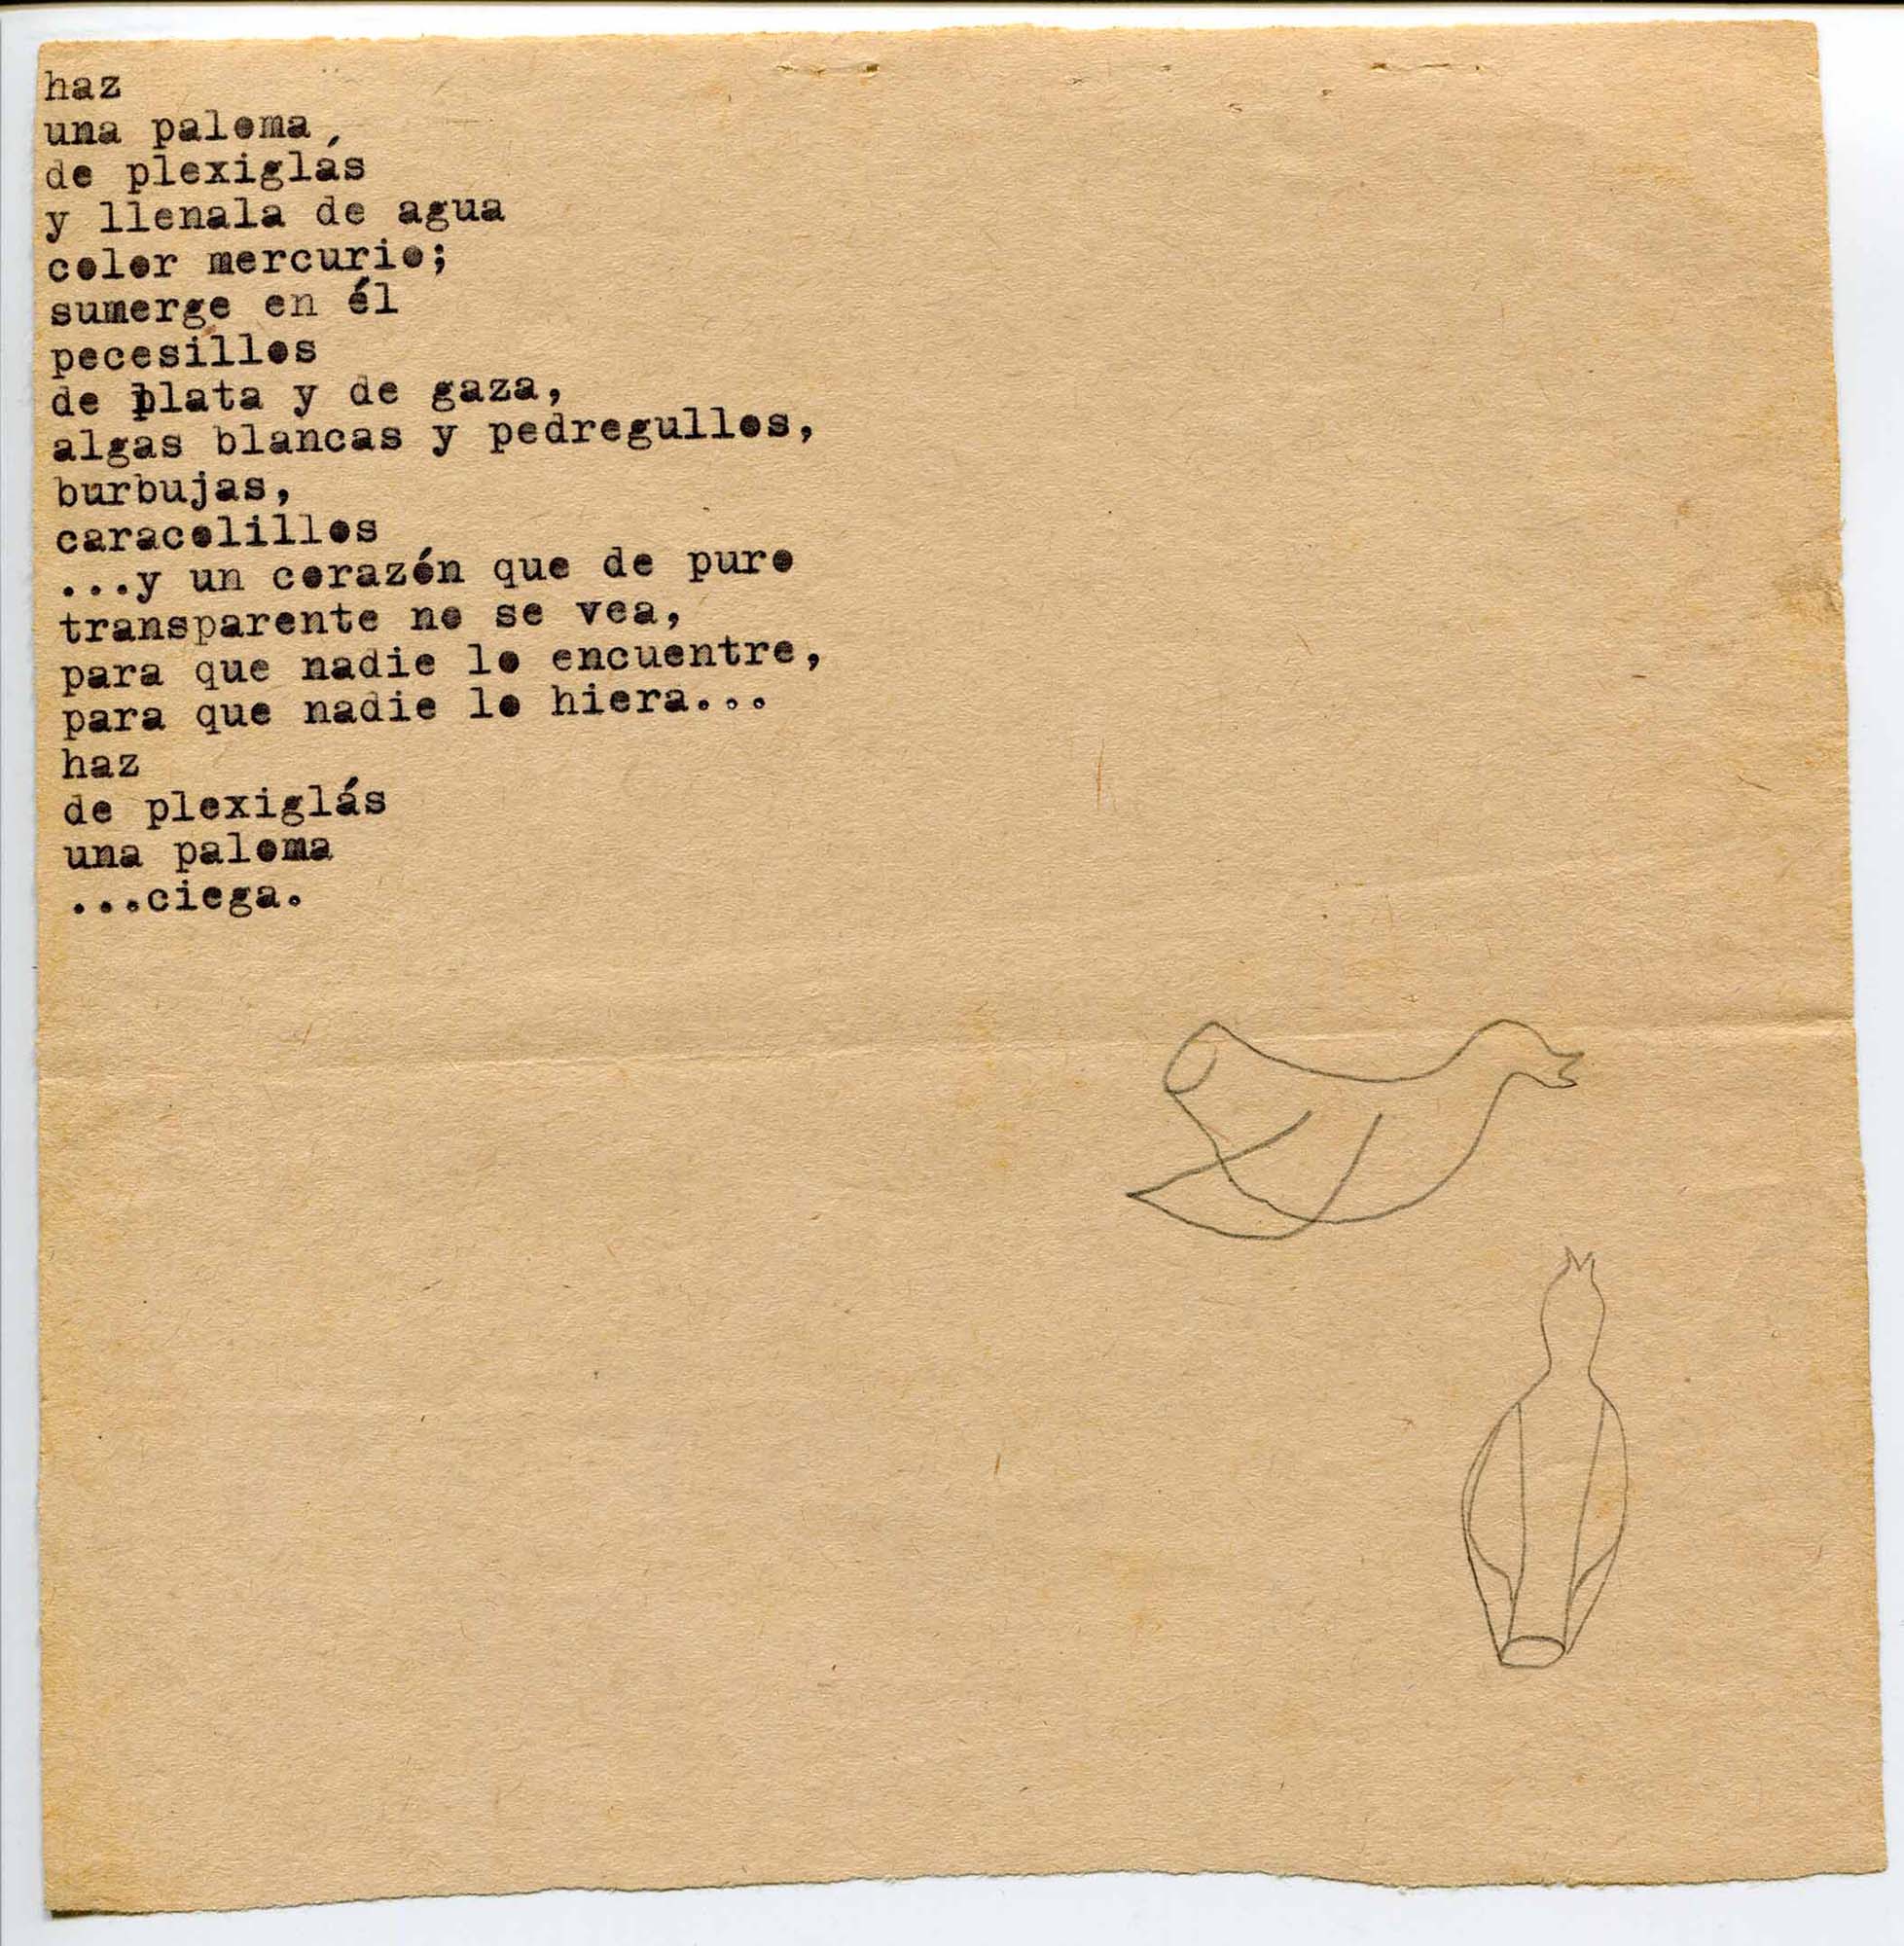 haz
una paloma
de plexiglás
y llenala de agua
color mercurio;
sumerge en él
pecesillos
de plata y de gaza,
algas blancas y pedregullos,
burbujas,
caracolillos
...y un corazón que de puro
transparente no se vea,
para que nadie lo encuentre,
para que nadie lo hiera...
haz
de plexiglás
una paloma
...ciega.